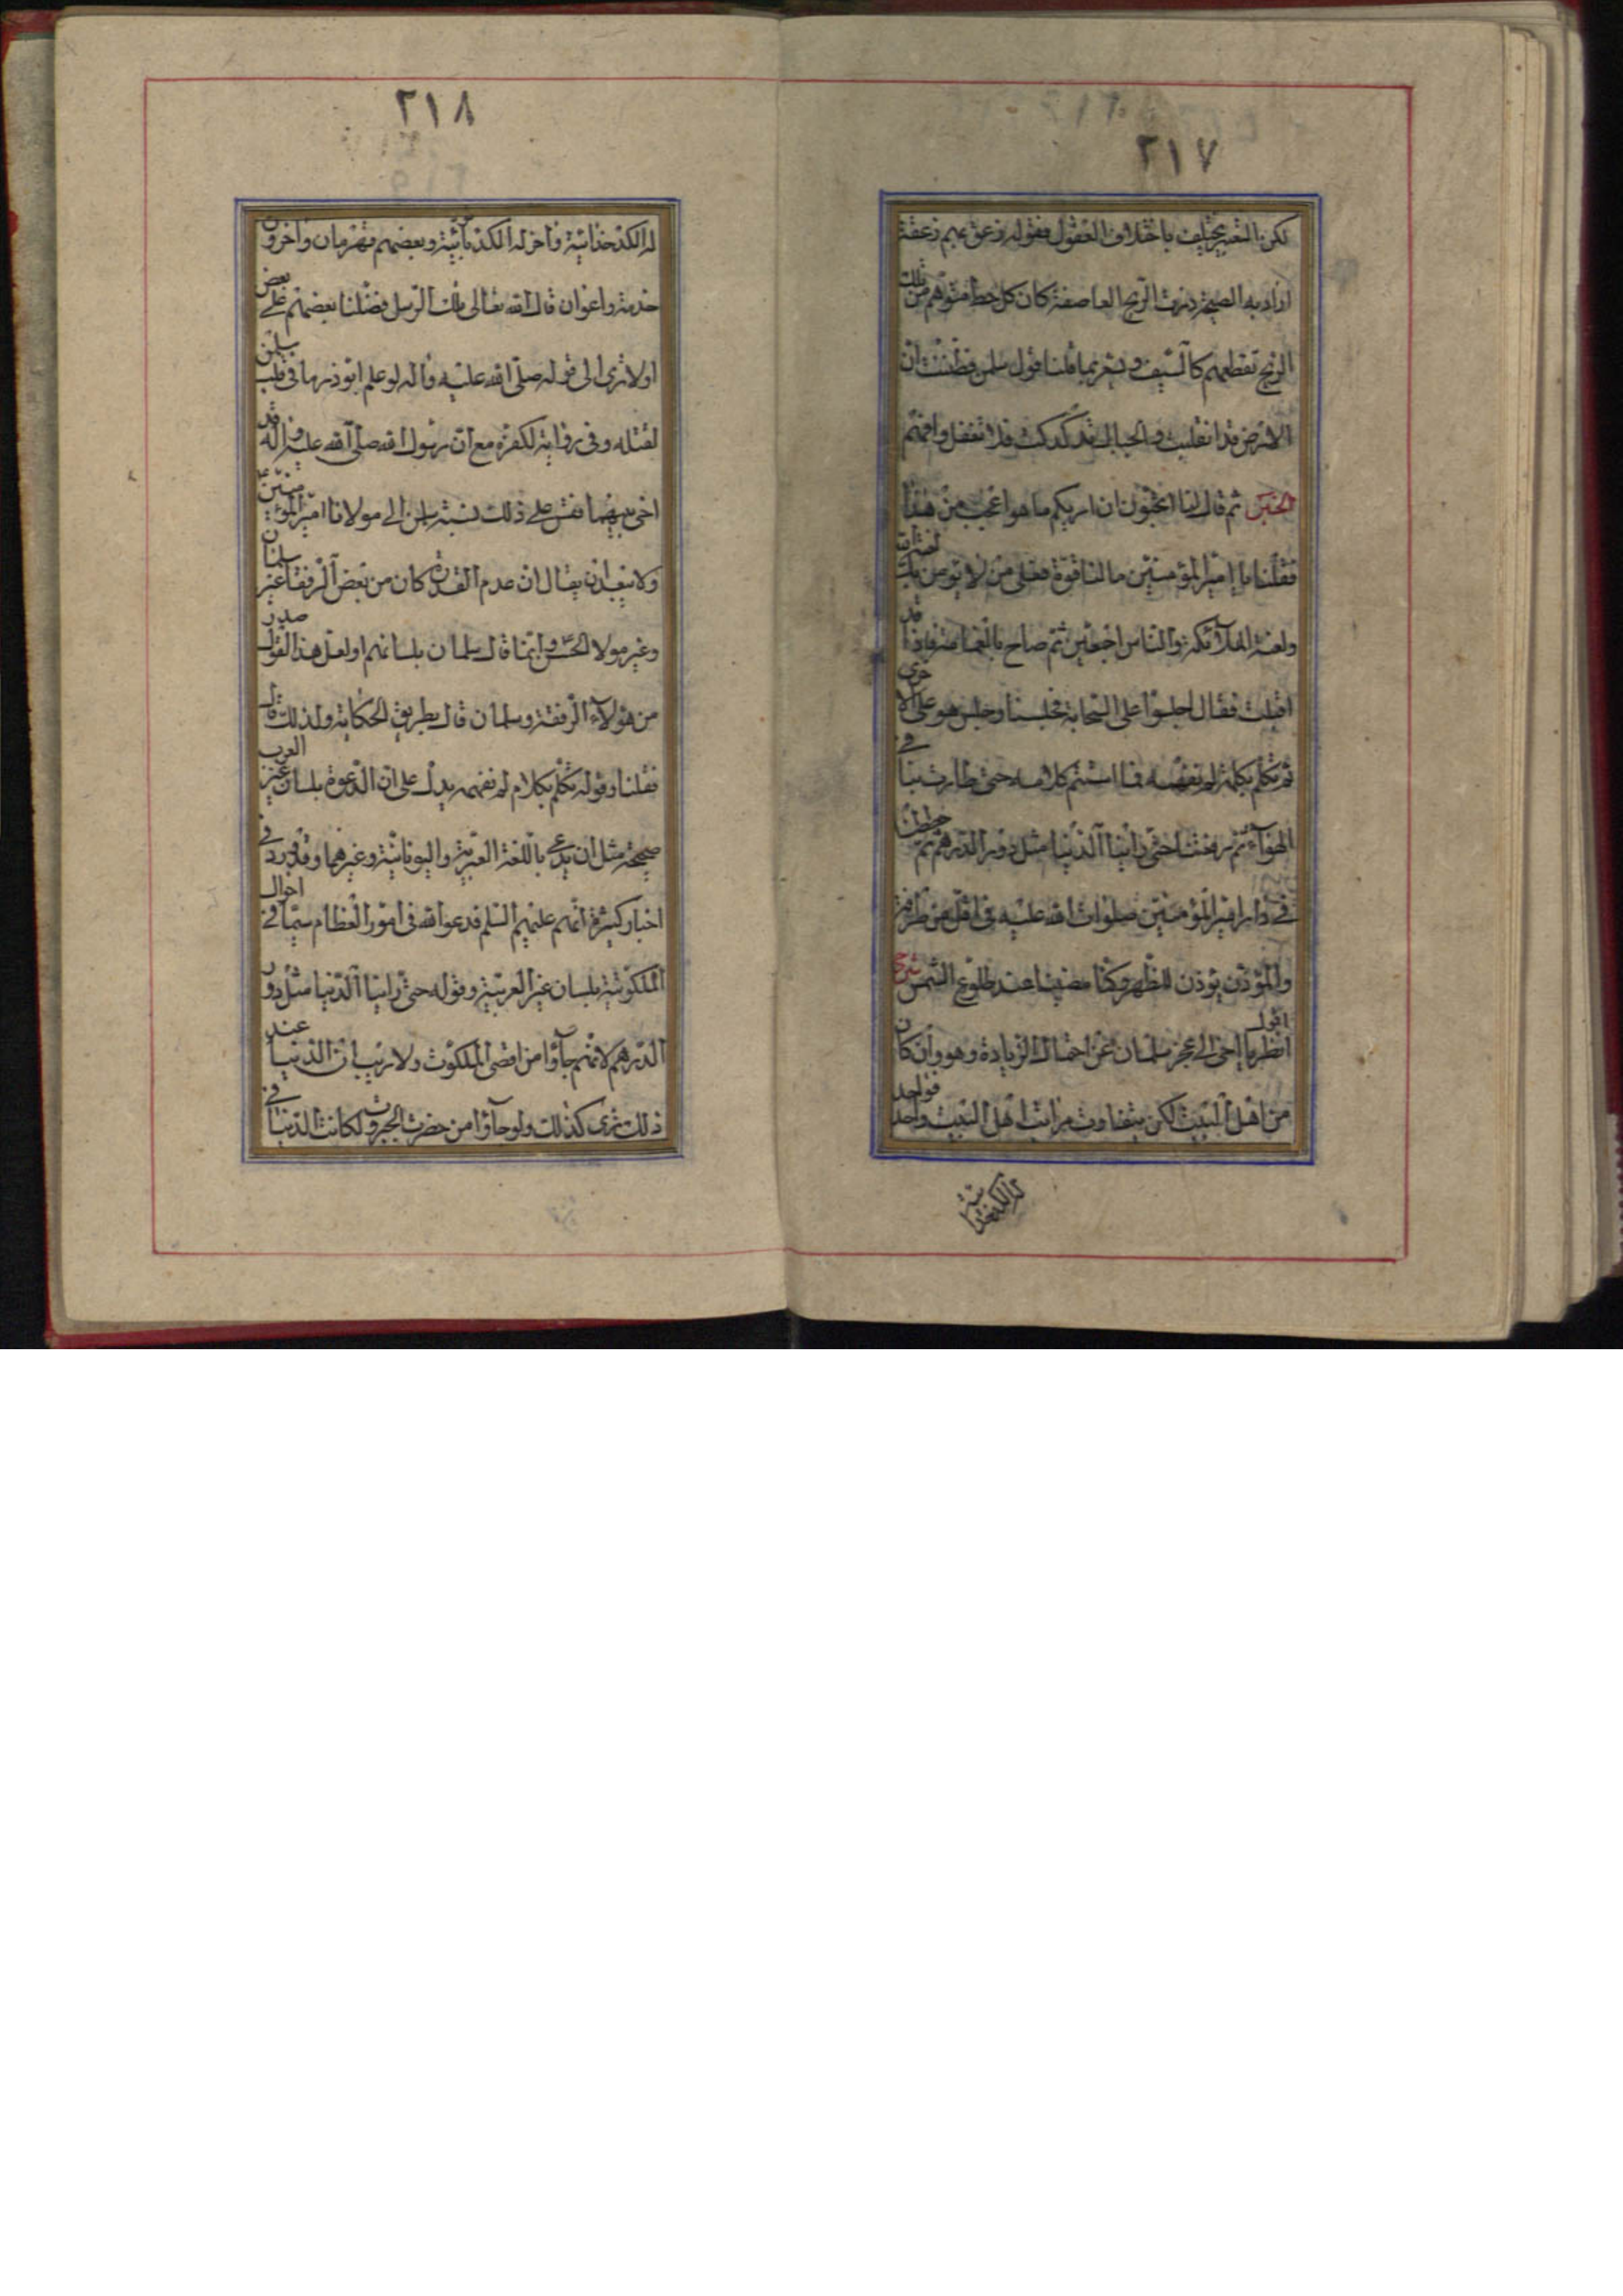 ٢١٧
لكن التعبير يختلف باختلاف العقول فقوله زعق عليهم زعقة
اراد به الصيحة وذرت الريح العاصفة كان كل حطا متوهم من تلك
الريح تقطعهم كالسيف ويشعر بما قلنا قول سلمن فظننت ان
الارض قد انقلبت والجبال قد كدكت فلا تغفل وافهم
الخبر ثم قال لنا اتحبون ان اريكم ما هو اعجب من هذا
فقلنا يا امير المؤمنين ما لنا قوة فعلى من لا يؤمن بك لعنة الله
ولعنة الملائكة والناس اجمعين ثم صاح بالغمامة فاذا قد
اقبلت فقال اجلسوا على السحابة فجلسنا وجلس هو على الاخرى
ثم تكلم بكلمة لم نفهمه فما استتم كلامه حتى طارت بنا في
الهواء ثم رفعتنا حتى راينا الدنيا مثل دور الدرهم ثم حططنا
في دار امير المؤمنين صلوات الله عليه في اقل من طرفة
والمؤذن يؤذن للظهر وكنا مضينا عند طلوع الشمس شرح
اقول انظر يا اخي الى عجز سلمان عن احتمال الزيادة وهو وان كان
من اهل البيت لكن يتفاوت مراتب اهل البيت فواحد واحد
له الكدخدائية
٢١٨
له الكدخدائية واخر له الكدبائية وبعضهم قهرمان واخرون
خدمة واعوان قال الله تعالى تلك الرسل فضلنا بعضهم على بعض
اولا ترى الى قوله صلى الله عليه واله لو علم ابوذر ما في قلب سلمن
لقتله وفي رواية لكفره مع ان رسول الله صلى الله عليه واله قد
اخى بينهما فقس على ذلك نسبة سلمن الى مولانا امير المؤمنين ع
ولا يبعد ان يقال ان عدم القدرة كان من بعض الرفقا غير سلمان
وغير مولا الحسن وانما قال سلمان بلسانهم او لعل هذا القول صدر
من هؤلاء الرفقة وسلمان قال بطريق الحكاية ولذلك قال
فقلنا وقوله تكلم بكلام لم نفهمه يدل على ان الدعوة بلسان غير العرب
صحيحة مثل ان يدعى باللغة العبرية واليونانية وغيرهما وقد ورد في
اخبار كثيرة انهم عليهم السلم قد عوا الله في امور العظام سيما في احوال
الملكوتية بلسان غير العربية وقوله حتى راينا الدنيا مثل دور
الدرهم لانهم جاؤا من اقصى الملكوت ولا ريب ان الدنيا عند
ذلك ترى كذلك ولو جاؤا من حضرت الجبروت لكانت الدنيا في